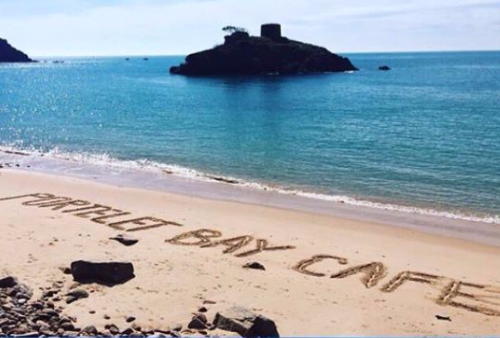 PORTELET BAY CAFE